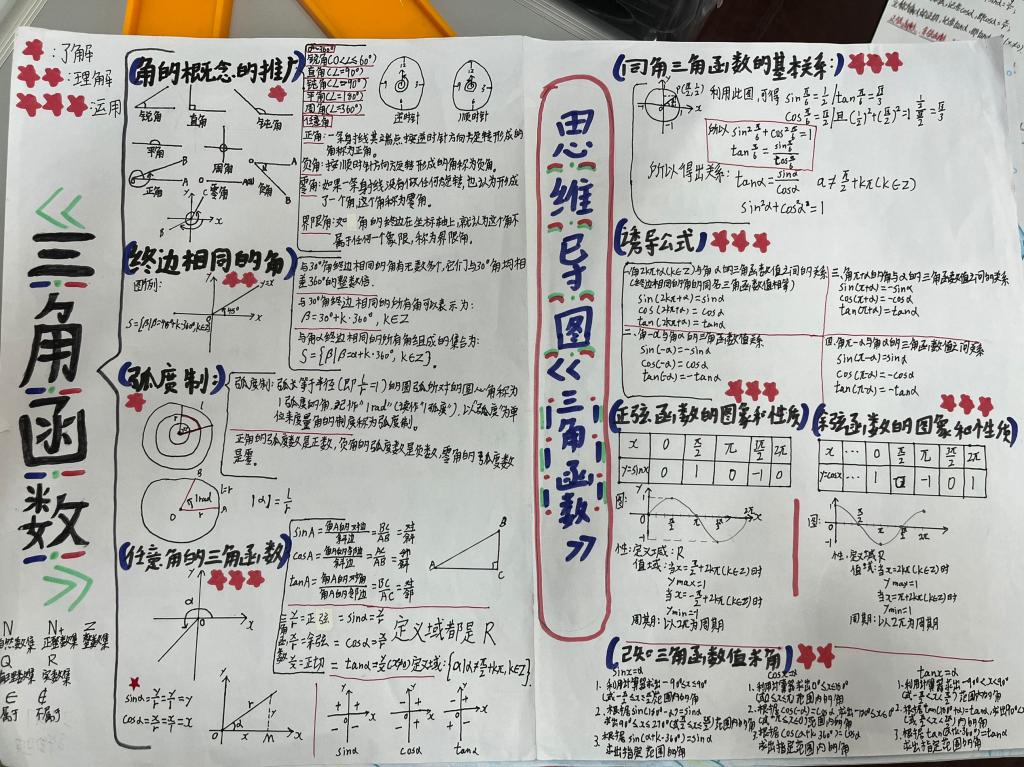 ★:了解
★★:理解
★★★:运用
《三角函数》
N N₊ Z
自然数集 正整数集 整数集
Q R
有理数集 实数集
∈ ∉
属于 不属于
角的概念的推广
锐角 直角 钝角
平角 周角
正角 零角 负角
直角(∠=90°)
平角(∠=180°)
周角(∠=360°)
任意角
逆时针 顺时针
正角:一条射线其端点按逆时针方向旋转形成的
角称为正角。
负角:按顺时针方向旋转形成的角称为负角。
零角:如果一条射线没有做任何旋转,也认为形成
了一个角,这个角称为零角。
界限角:如 角的终边在坐标轴上,就认为这个角不
属于任何一个象限,称为界限角。
终边相同的角
图例:
y=x
45°
与30°角终边相同的角有无数多个,它们与30°角均相
差360°的整数倍.
与30°角终边相同的所有角可以表示为:
β=30°+k·360°,k∈Z
与角α终边相同的所有角组成的集合为:
S={β|β=α+k·360°,k∈Z}.
弧度制:
弧度制:弧长等于半径(即l/r=1)的圆弧所对的圆心角称为
1弧度的角,记作"1rad"(读作"1弧度").以弧度为单
位来度量角的制度称为弧度制.
正角的弧度数是正数,负角的弧度数是负数,零角的弧度数
是零.
1rad l=r
|α|=l/r
任意角的三角函数
sinA=角A的对边/斜边=BC/AB=对/斜
cosA=角A的邻边/斜边=AC/AB=邻/斜
tanA=角A的对边/角A的邻边=BC/AC=对/邻
y/r=正弦=sinα=y/r
x/r=余弦=cosα=x/r 定义域都是R
y/x=正切=tanα=y/x(x≠0)定义域:{α|α≠π/2+kπ,k∈Z}
sinα=y/r=y/1=y
cosα=x/r=x/1=x
sinα cosα tanα
思维导图《三角函数》
同角三角函数的基本关系:
利用此图,可得 sinπ/6=1/2
所以 sin²π/6+cos²π/6=1
tanπ/6=sinπ/6/cosπ/6
所以得出关系:tanα=sinα/cosα α≠π/2+kπ(k∈Z)
sin²α+cos²α=1
诱导公式
一.角2kπ+α(k∈Z)与角α的三角函数值之间的关系
(终边相同的角的同名三角函数值相等)
sin(2kπ+α)=sinα
cos(2kπ+α)=cosα
tan(2kπ+α)=tanα
二.角-α与角α的三角函数值关系
sin(-α)=-sinα
cos(-α)=cosα
tan(-α)=-tanα
三.角π+α的角与α的三角函数值之间的关系
sin(π+α)=-sinα
cos(π+α)=-cosα
tan(π+α)=tanα
四.角π-α与角α的三角函数值之间关系
sin(π-α)=sinα
cos(π-α)=-cosα
tan(π-α)=-tanα
正弦函数的图象和性质
x 0 π/2 π 3π/2 2π
y=sinx 0 1 0 -1 0
图:
性:定义域:R
值域:当x=π/2+2kπ(k∈Z)时
ymax=1
当x=-π/2+2kπ(k∈Z)时
ymin=1
周期:以2π为周期
余弦函数的图象和性质
x … 0 π/2 π 3π/2 2π
y=cosx … 1 0 -1 0 1
图:
性:定义域R
值域:当x=2kπ(k∈Z)时
ymax=1
当x=π+2kπ(k∈Z)时
ymin=1
周期:以2π为周期
已知三角函数值求角
sinx=a
1.利用计算器求出-90°≤x≤90°
2.根据sin(180°-α)=sinα
3.根据sin(α+k·360°)=sinα
求出指定范围的角
cosx=a
1.利用计算器求出0°≤x≤180°
2.根据cos(-α)=cosα,求出-180°≤x≤0°
3.根据cos(α+k·360°)=cosα
求出指定范围内的角
tanx=a
1.利用计算器求出-90°<x<90°
2.根据tan(180°+α)=tanα
3.根据tan(α+k·360°)=tanα
求出指定范围的角